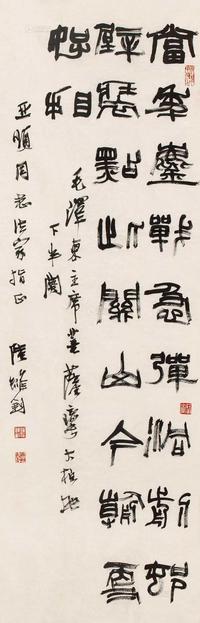 當年鏖戰急彈洞前村
壁裝點此關山今朝更
好看
毛澤東主席菩薩蠻大柏地
下半闋
亞順同志法家指正
陸維釗